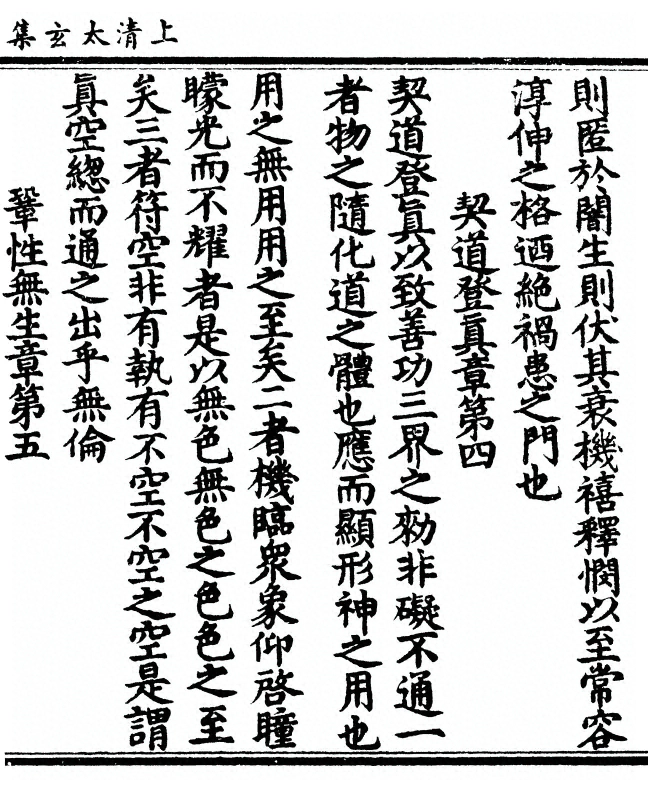 上清太玄集
則匿於闇生則伏其衰機禧釋憫以至常容
淳伸之格迺絕禍患之門也
契道登眞章第四
契道登眞以致善功三界之効非礙不通一
者物之隨化道之體也應而顯形神之用也
用之無用用之至矣二者機臨衆象仰啓瞳
矇光而不耀者是以無色無色之色色之至
矣三者符空非有執有不空不空之空是謂
眞空緫而通之出乎無倫
鞏性無生章第五